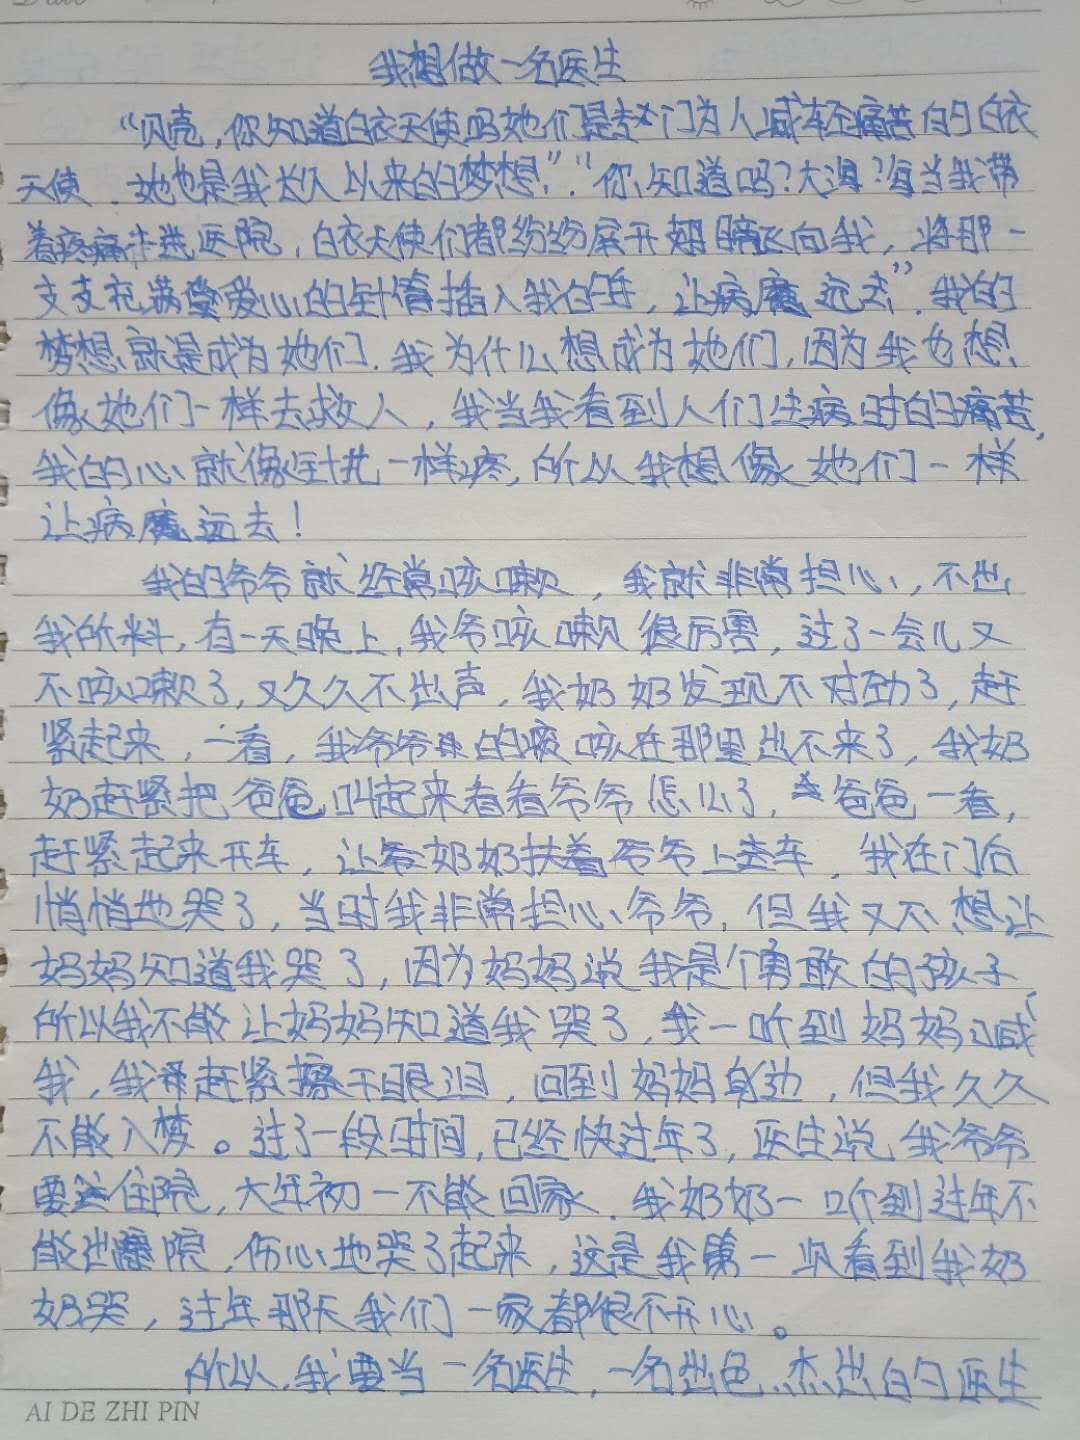 我想做一名医生
“贝壳，你知道白衣天使吗她们是专门为人减轻痛苦的白衣
天使．她也是我长久以来的梦想”．“你知道吗？大海？每当我带
着疼痛走进医院，白衣天使们都纷纷展开翅膀飞向我，将那一
支支充满爱心的针管插入我的手，让病魔远去”．我的
梦想就是成为她们．我为什么想成为她们，因为我也想
像她们一样去救人，我当我看到人们生病时的痛苦，
我的心就像针扎一样疼，所以我想像她们一样
让病魔远去！
我的爷爷就经常咳嗽，我就非常担心，不出
我所料，有一天晚上，我爷咳嗽很厉害，过了一会儿又
不咳嗽了，又久久不出声，我奶奶发现不对劲了，赶
紧起来，一看，我爷爷的痰咳在那里出不来了，我奶
奶赶紧把爸爸叫起来看看爷爷怎么了，爸爸一看，
赶紧起来开车，让奶奶扶着爷爷上车，我在门后
悄悄地哭了，当时我非常担心爷爷，但我又不想让
妈妈知道我哭了，因为妈妈说我是个勇敢的孩子，
所以我不能让妈妈知道我哭了，我一听到妈妈喊
我，我赶紧擦干眼泪，回到妈妈身边，但我久久
不能入梦。过了一段时间，已经快过年了，医生说我爷爷
要住院，大年初一不能回家．我奶奶一听到过年不
能出院，伤心地哭了起来，这是我第一次看到我奶
奶哭，过年那天我们一家都很不开心。
所以，我要当一名医生，一名出色、杰出的医生
AI DE ZHI PIN